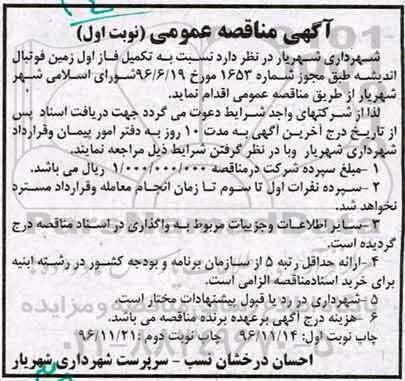 آگهی مناقصه عمومی (نوبت اول)
شهرداری شهریار در نظر دارد نسبت به تکمیل فاز اول زمین فوتبال
اندیشه طبق مجوز شماره ۱۶۵۳ مورخ ۹۶/۶/۱۹شورای اسلامی شهر
شهریار از طریق مناقصه عمومی اقدام نماید.
لذا از شرکتهای واجد شرایط دعوت می گردد جهت دریافت اسناد پس
از تاریخ درج آخرین آگهی به مدت ۱۰ روز به دفتر امور پیمان وقرارداد
شهرداری شهریار وبا در نظر گرفتن شرایط ذیل مراجعه نمایند.
۱ -مبلغ سپرده شرکت درمناقصه ۱/۰۰۰/۰۰۰/۰۰۰ ریال می باشد.
۲ -سپرده نفرات اول تا سوم تا زمان انجام معامله وقرارداد مسترد
نخواهد شد.
۳ -سایر اطلاعات وجزییات مربوط به واگذاری در اسناد مناقصه درج
گردیده است.
۴ -ارائه حداقل رتبه ۵ از سازمان برنامه و بودجه کشور در رشته ابنیه
برای خرید اسنادمناقصه الزامی است.
۵ -شهرداری در رد یا قبول پیشنهادات مختار است.
۶ -هزینه درج آگهی برعهده برنده مناقصه می باشد.
چاپ نوبت اول: ۹۶/۱۱/۱۴ چاپ نوبت دوم :۹۶/۱۱/۲۱
احسان درخشان نسب - سرپرست شهرداری شهریار